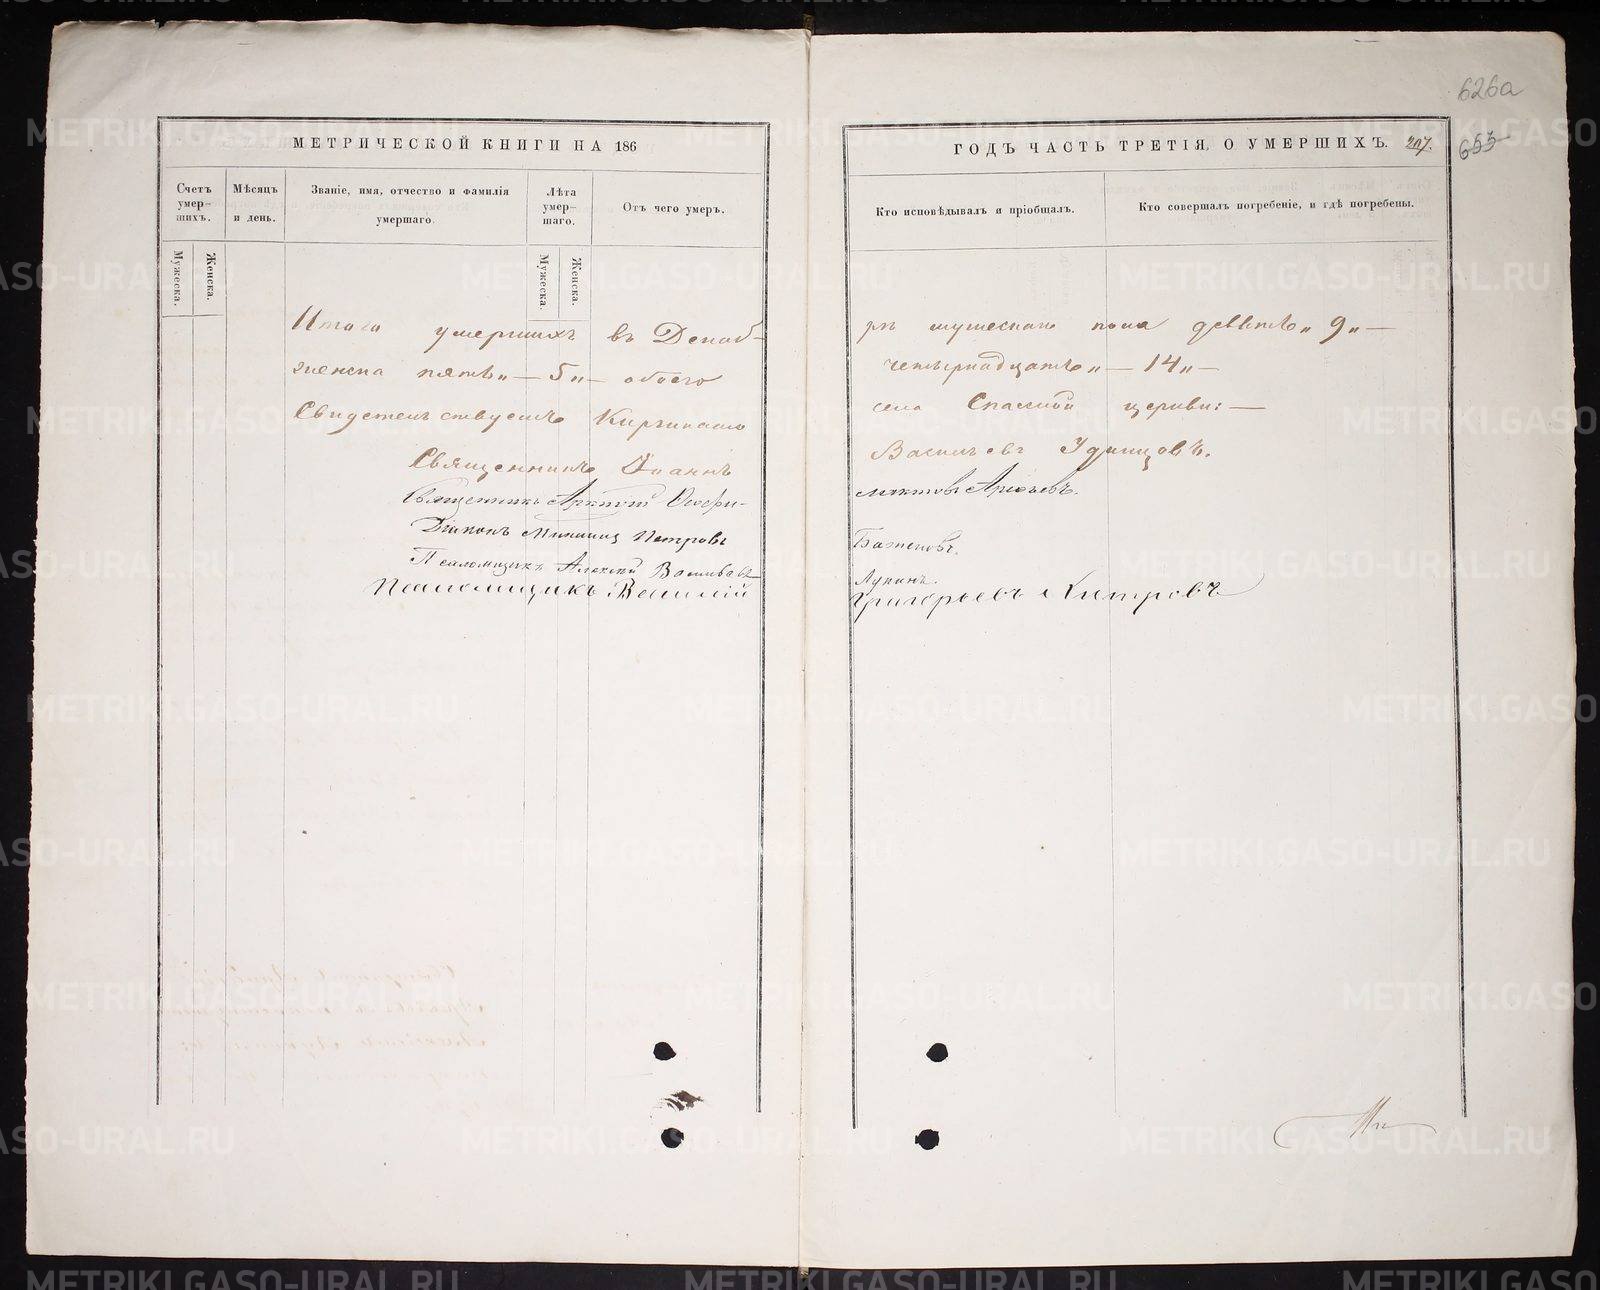 626а
МЕТРИЧЕСКОЙ КНИГИ НА 186
ГОДЪ ЧАСТЬ ТРЕТІЯ, О УМЕРШИХЪ. 207. 653
Счетъ умер-шихъ.
Мѣсяцъ и день.
Званіе, имя, отчество и фамилія умершаго.
Лѣта умер-шаго.
Отъ чего умеръ.
Кто исповѣдывалъ и пріобщалъ.
Кто совершалъ погребеніе, и гдѣ погребены.
Мужеска.
Женска.
Мужеска.
Женска.
Итого умершихъ въ Декаб-
рѣ мужескаго пола девять „ 9 „ —
женска пять „ — 5 „ — обоего
четырнадцать „ — 14 „ —
Свидетельствуемъ Киргишанского
села Спасской церкви: —
Священникъ Іоаннъ
Васильевъ Удинцовъ.
Священникъ
Діаконъ Петровъ
Баженовъ.
Псаломщикъ Алексій
Лукинъ.
Псаломщикъ Василій
Григорьевъ Хитровъ
METRIKI.GASO-URAL.RU